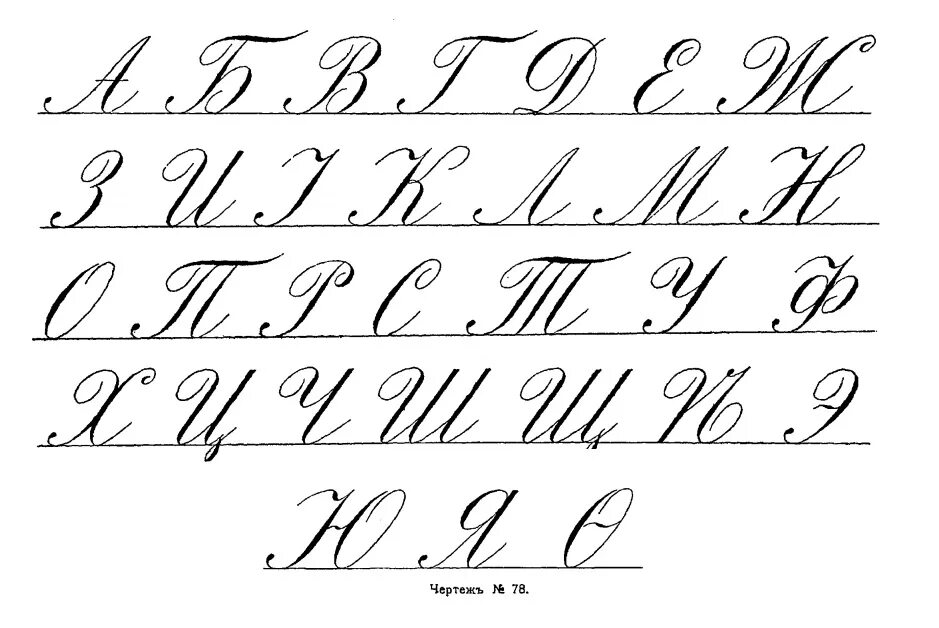 А Б В Г Д Е Ж
З И І К Л М Н
О П Р С Т У Ф
Х Ц Ч Ш Щ Ѣ Э
Ю Я Ѳ
Чертежъ № 78.